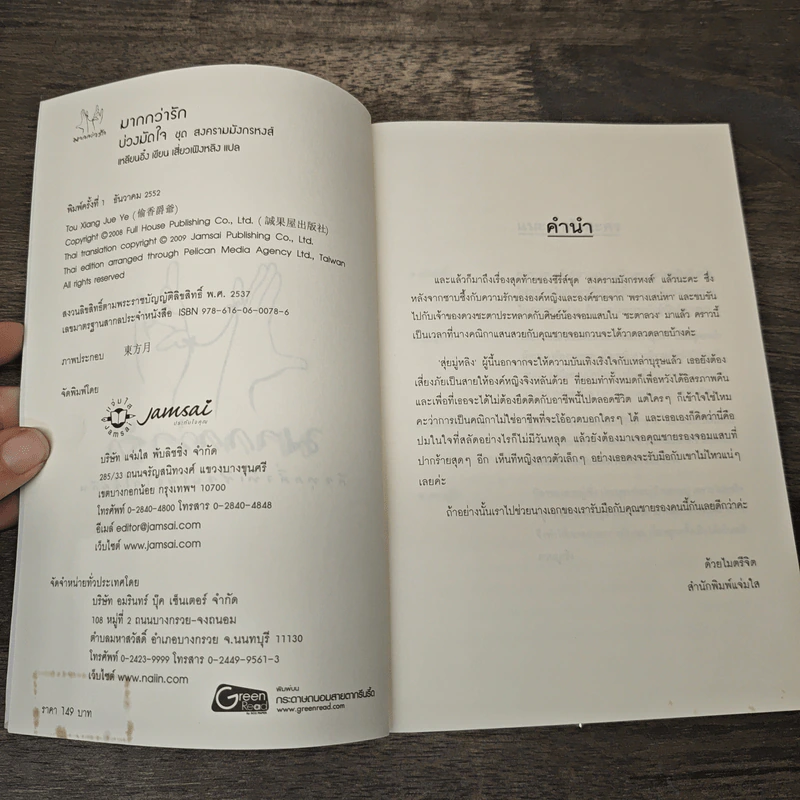 มากกว่ารัก
มากกว่ารัก
บ่วงมัดใจ ชุด สงครามมังกรหงส์
เหลียนอิ๋ง เขียน เสี่ยวเฟิงหลิง แปล
พิมพ์ครั้งที่ 1 ธันวาคม 2552
Tou Xiang Jue Ye (偷香爵爺)
Copyright ©2008 Full House Publishing Co., Ltd. (誠果屋出版社)
Thai translation copyright © 2009 Jamsai Publishing Co., Ltd.
Thai edition arranged through Pelican Media Agency Ltd., Taiwan
All rights reserved
สงวนลิขสิทธิ์ตามพระราชบัญญัติลิขสิทธิ์ พ.ศ. 2537
เลขมาตรฐานสากลประจำหนังสือ ISBN 978-616-06-0078-6
ภาพประกอบ 東方月
จัดพิมพ์โดย
แจ่มใส
Jamsai
Jamsai
บริษัท แจ่มใส พับลิชชิ่ง จำกัด
285/33 ถนนจรัญสนิทวงศ์ แขวงบางขุนศรี
เขตบางกอกน้อย กรุงเทพฯ 10700
โทรศัพท์ 0-2840-4800 โทรสาร 0-2840-4848
อีเมล์ editor@jamsai.com
เว็บไซต์ www.jamsai.com
จัดจำหน่ายทั่วประเทศโดย
บริษัท อมรินทร์ บุ๊ค เซ็นเตอร์ จำกัด
108 หมู่ที่ 2 ถนนบางกรวย-จงถนอม
ตำบลมหาสวัสดิ์ อำเภอบางกรวย จ.นนทบุรี 11130
โทรศัพท์ 0-2423-9999 โทรสาร 0-2449-9561-3
เว็บไซต์ www.naiin.com
ราคา 149 บาท
Green Read
พิมพ์บน
กระดาษถนอมสายตากรีนรี้ด
www.greenread.com
คำนำ
และแล้วก็มาถึงเรื่องสุดท้ายของซีรี่ส์ชุด 'สงครามมังกรหงส์' แล้วนะคะ ซึ่ง
หลังจากซาบซึ้งกับความรักขององค์หญิงและองค์ชายจาก 'พรางเสน่หา' และขบขัน
ไปกับเจ้าของดวงชะตาประหลาดกับศิษย์น้องจอมแสบใน 'ชะตาลวง' มาแล้ว คราวนี้
เป็นเวลาที่นางคณิกาแสนสวยกับคุณชายจอมกวนจะได้วาดลวดลายบ้างค่ะ
'สุ่ยมู่หลิง' ผู้นี้นอกจากจะให้ความบันเทิงเริงใจกับเหล่าบุรุษแล้ว เธอยังต้อง
เสี่ยงภัยเป็นสายให้องค์หญิงจิงหลันด้วย ที่ยอมทำทั้งหมดก็เพื่อหวังได้อิสรภาพคืน
และเพื่อที่เธอจะได้ไม่ต้องยึดติดกับอาชีพนี้ไปตลอดชีวิต แต่ใครๆ ก็เข้าใจใช่ไหม
คะว่าการเป็นคณิกาไม่ใช่อาชีพที่จะโอ้อวดบอกใครๆ ได้ และเธอเองก็คิดว่านี่คือ
ปมในใจที่สลัดอย่างไรก็ไม่มีวันหลุด แล้วยังต้องมาเจอคุณชายรองจอมแสบที่
ปากร้ายสุดๆ อีก เห็นทีหญิงสาวตัวเล็กๆ อย่างเธอคงจะรับมือกับเขาไม่ไหวแน่ๆ
เลยค่ะ
ถ้าอย่างนั้นเราไปช่วยนางเอกของเรารับมือกับคุณชายรองคนนี้กันเลยดีกว่าค่ะ
ด้วยไมตรีจิต
สำนักพิมพ์แจ่มใส